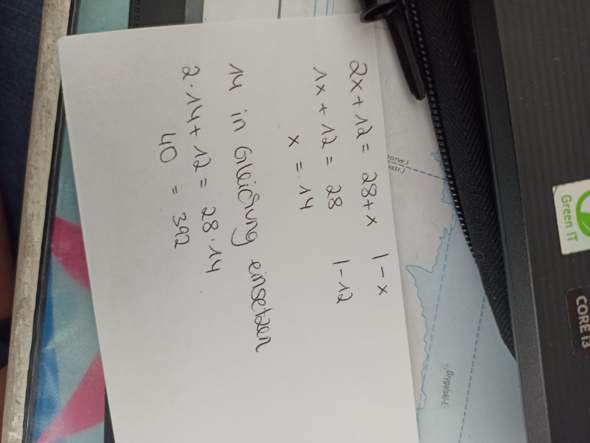 2x + 12 = 28 + x | - x
1x + 12 = 28 | - 12
x = 14
14 in Gleichung einsetzen
2 · 14 + 12 = 28 · 14
40 = 392
Green IT
CORE i3